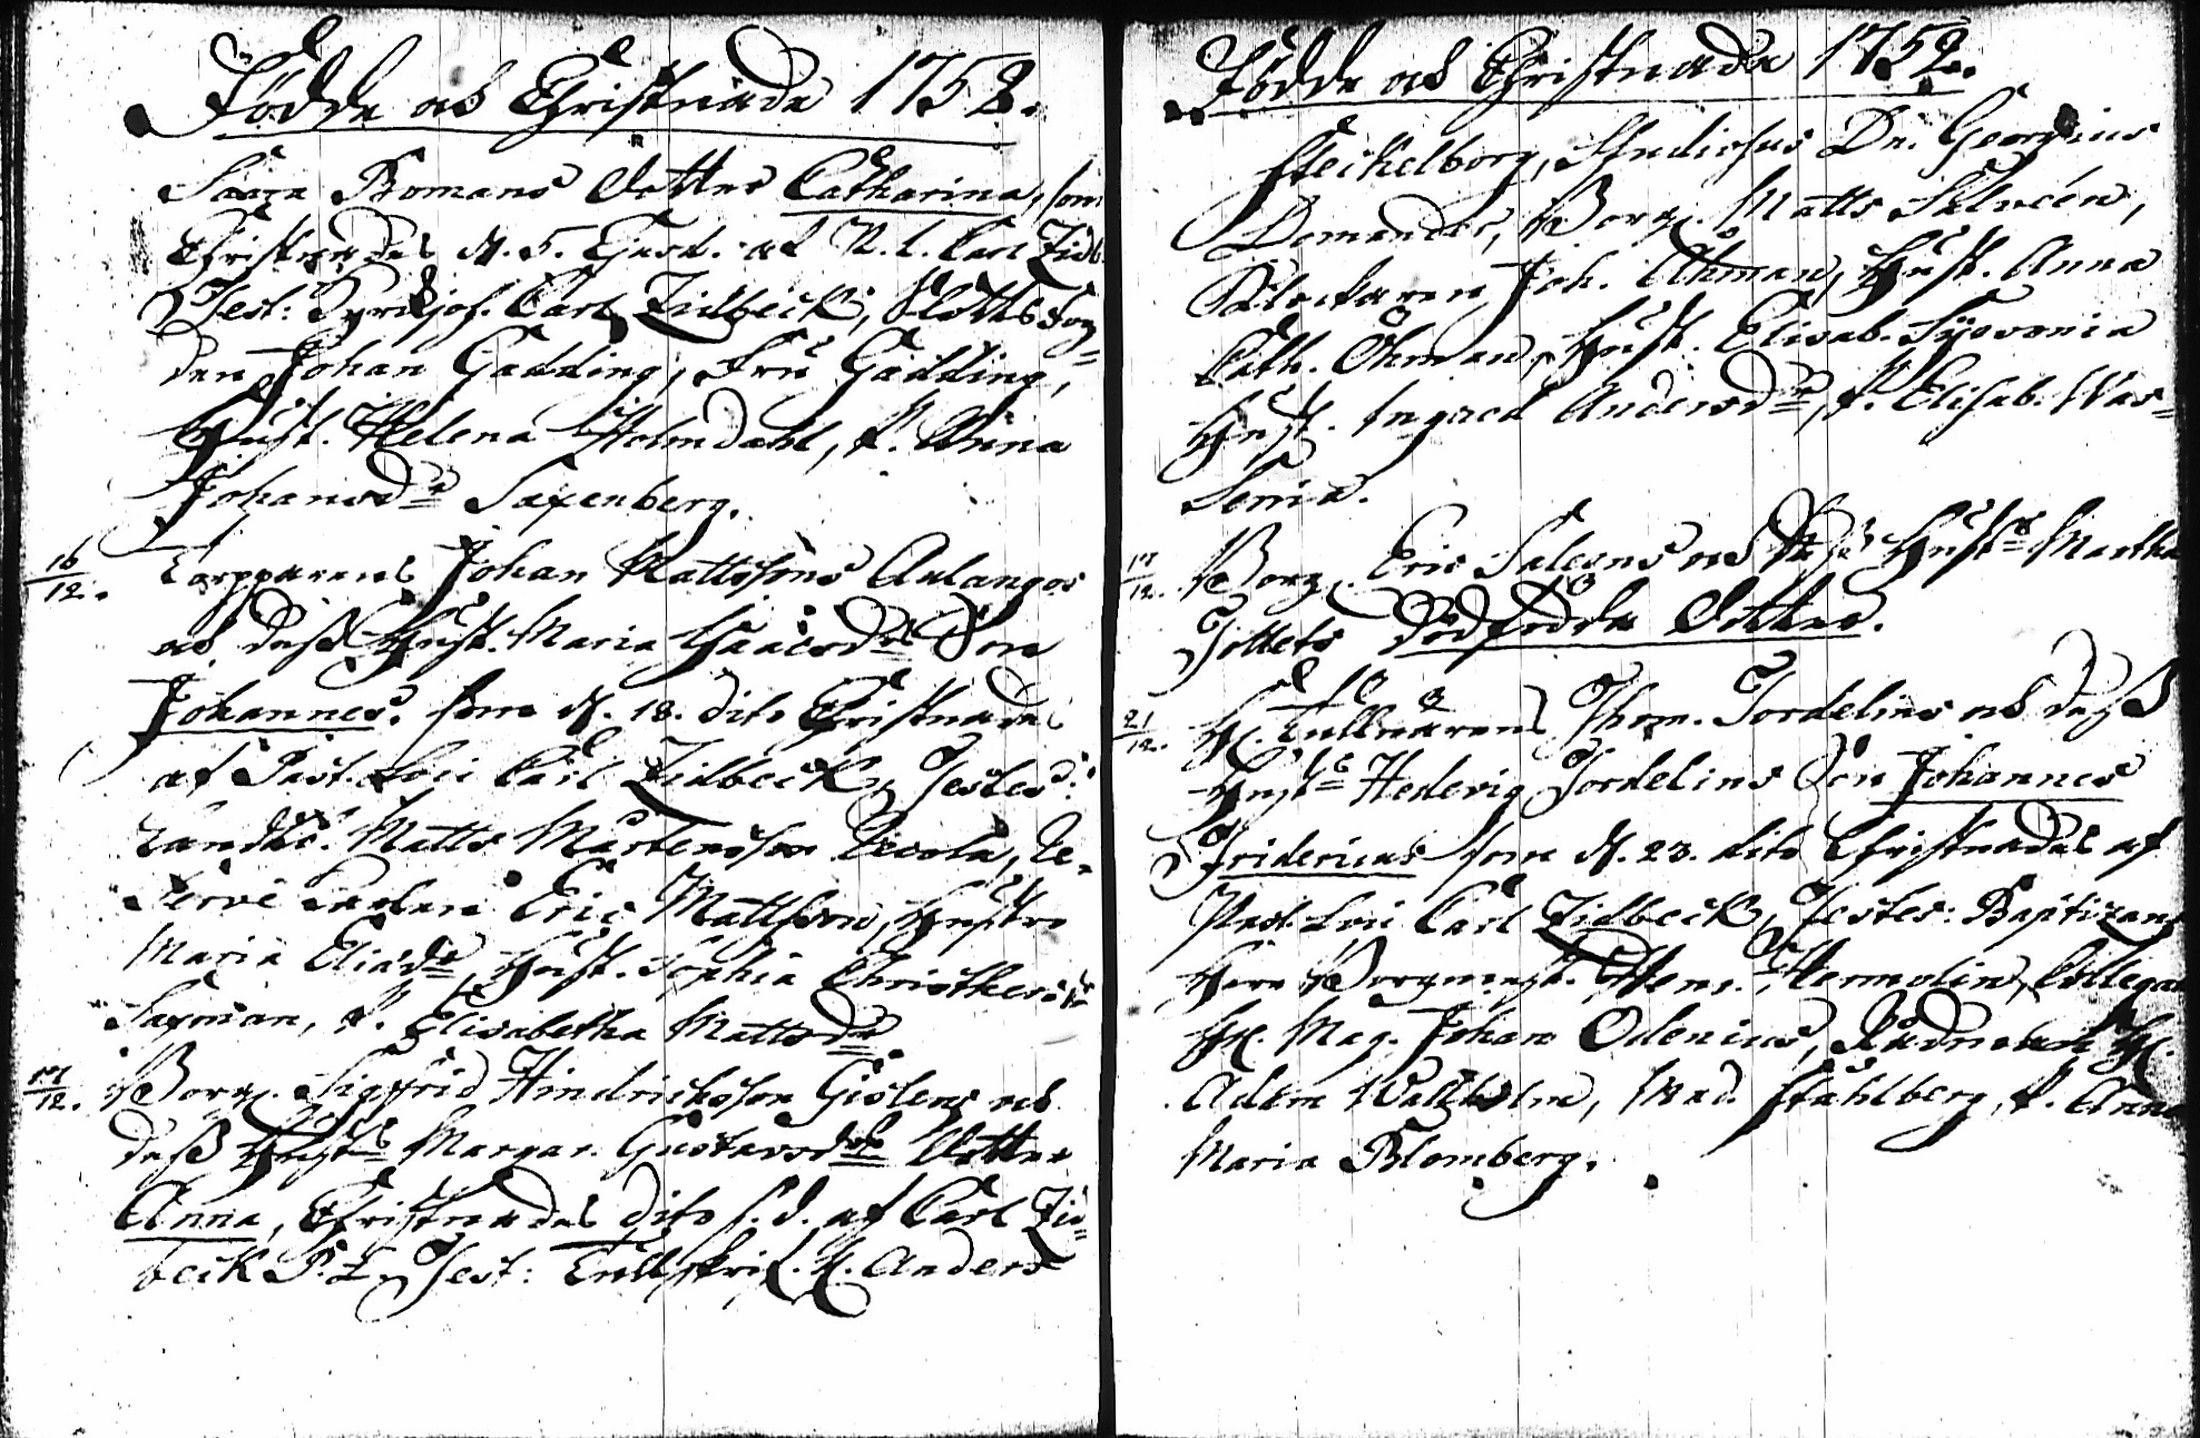 Födde och Christnade 1752.
Sara Bomans Dotter Catharina, som
Christnades d. 5. Ejusd. af N. l. Carl Zidb.
Test: Carl Zidbeck, Slotts Fog-
den Johan Gadding, Fru Gadding,
Hust. Helena Holmdahl, P. Anna
Johansdr Saxenberg.
16/12. Torpparens Johan Mattssons Aulangos
och dess Hust. Maria Isaacsdrs Son
Johannes. som d. 18. dito Christnades
af Past. Loci Carl Zidbeck, Testes:
Matts Mårtensson, Re-
serve Karlen Eric Mattsson, Hustro
Maria Eliædr, Hust. Sophia
Saxman, P. Elisabetha Mattsdr
17/12. Borg. Sigfrid Hindrichsson Gislens och
dess Hustrs Margar. Gustavsdrs Dotter
Anna, Christnades dito s. d. af Carl Zid-
beck P. L. Test: Tullskrif. H. Anders
Födde och Christnade 1752.
Steckelborg, Studiosus Dn. Georgius
Domander, Borg. Matts Salucén,
Joh. Åhman, Hust. Anna
Cath. Öhman, Hust. Elisab.
Hust. Ingred Andersdr, P. Elisab. Was-
senia.
17/12. Borg. Eric Saleens och Hustrs Martha
Dödfödda Dotter.
21/12. H. Tullnærens Thom. Tordelins och dess
Hustrs Hedevig Tordelins Son Johannes
Fridericus som d. 23. dito Christnades af
Past. Loci Carl Zidbeck, Testes: Baptizans
Herr Borgmest. Henr. Hermolin, Collegan
H. Mag. Johan Odenius, Rådman H.
Adam Wallholm, Mad. Ståhlberg, P. Anna
Maria Blomberg.